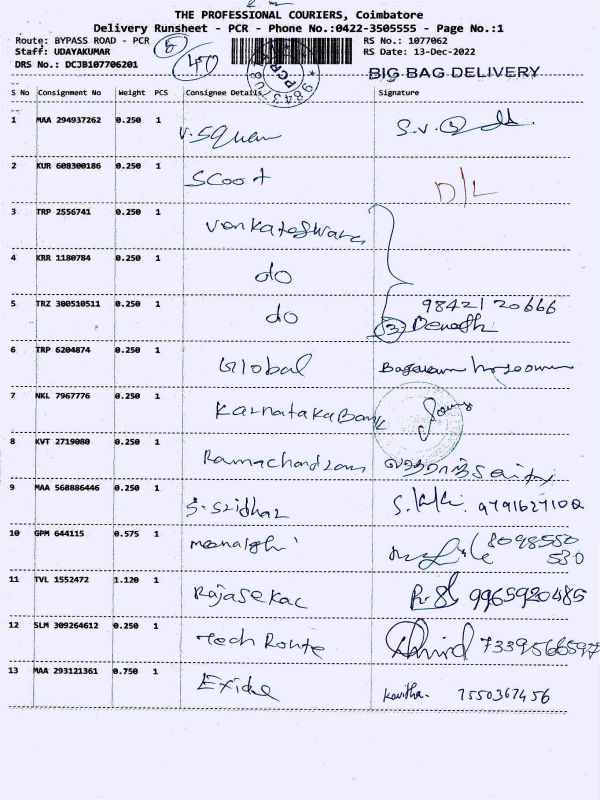 THE PROFESSIONAL COURIERS, Coimbatore
Delivery Runsheet - PCR - Phone No.:0422-3505555 - Page No.:1
Route: BYPASS ROAD - PCR
RS No.: 1077062
Staff: UDAYAKUMAR
RS Date: 13-Dec-2022
DRS No.: DCJB107706201
BIG BAG DELIVERY
S No Consignment No Weight PCS Consignee Details Signature
1 MAA 294937262 0.250 1 V. Square
2 KUR 608300186 0.250 1 Scoot D/L
3 TRP 2556741 0.250 1 Venkateswara
4 KRR 1180784 0.250 1 do
5 TRZ 300510511 0.250 1 do 9842120666
3
6 TRP 6204874 0.250 1 Global
7 NKL 7967776 0.250 1 Karnataka Bank
8 KVT 2719080 0.250 1 Ramachandran
9 MAA 568886446 0.250 1 S. Sridhar 9791627102
10 GPM 644115 0.575 1 8098550
530
11 TVL 1552472 1.120 1 Rajasekar 9965920485
12 SLM 309264612 0.250 1 Tech Route
13 MAA 293121361 0.750 1 Exide Kavitha. 7550367456